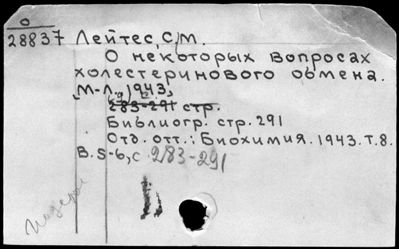 О
28837 Лейтес, С.М.
О некоторых вопросах
холестеринового обмена.
М-Л., 1943,
283-291 стр.
Библиогр. стр. 291
Отд. отт.: Биохимия. 1943. Т. 8.
В. 5-6, с. 283-291